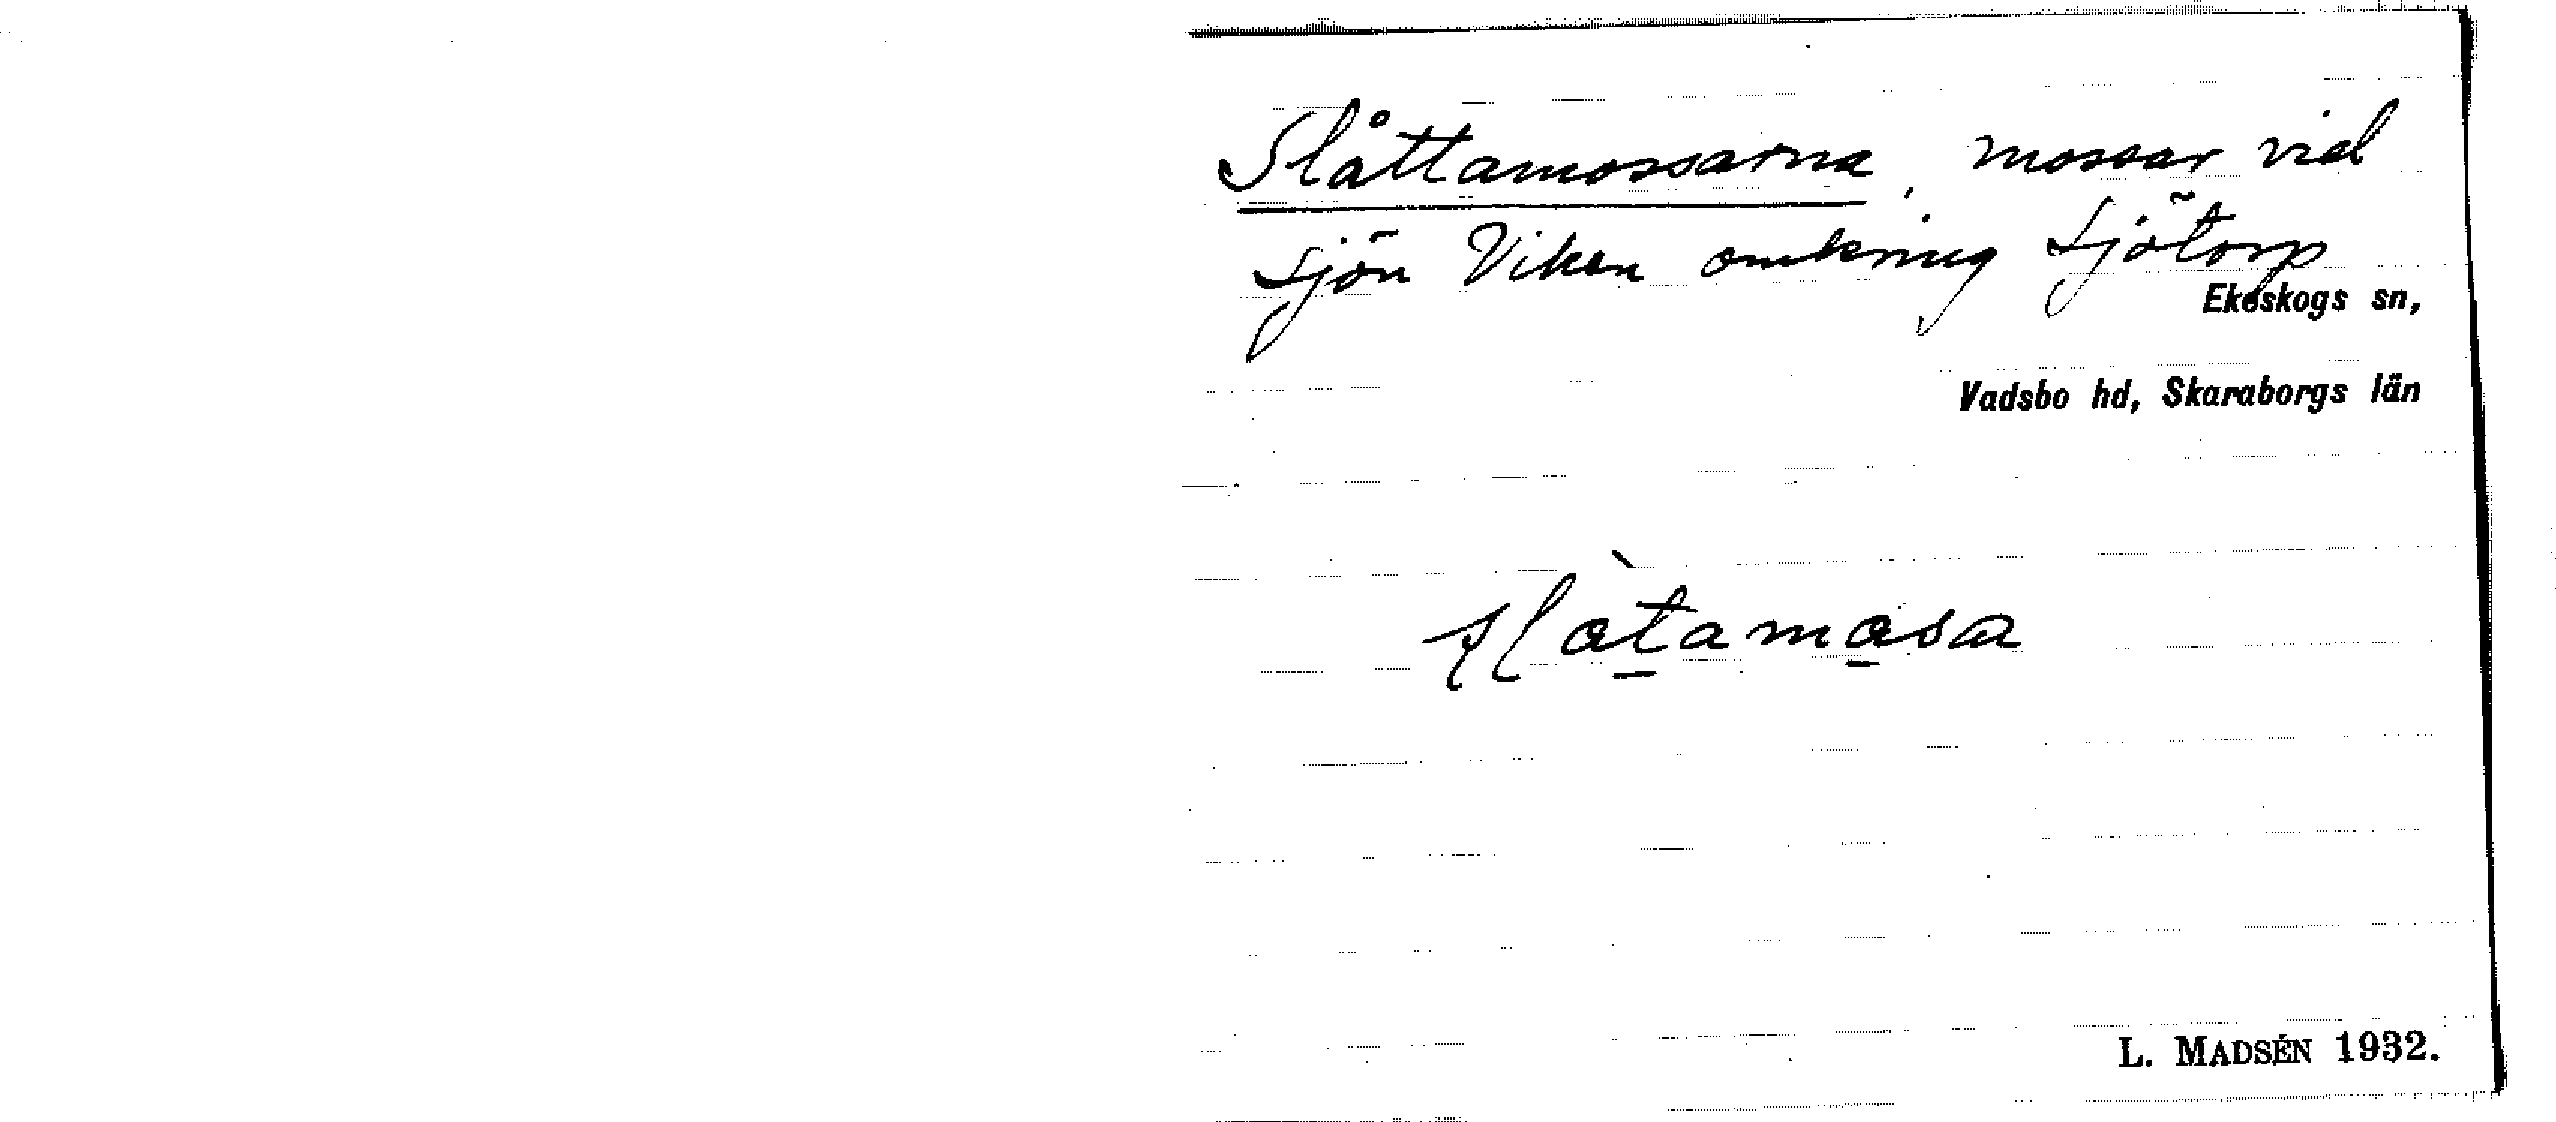 Slåttamossarna, mossar vid
sjön Viken omkring Sjötorp
Ekeskogs sn,
Vadsbo hd, Skaraborgs län
slòt̲amo̲sa
L. MADSÉN 1932.